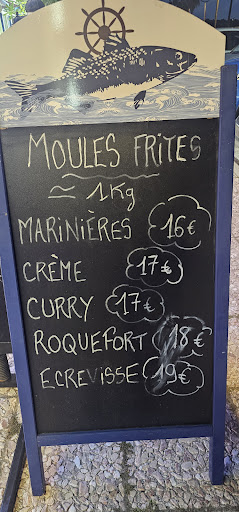 MOULES FRITES
≈ 1Kg
MARINIÈRES 16€
CRÈME 17€
CURRY 17€
ROQUEFORT 18€
ECREVISSE 19€